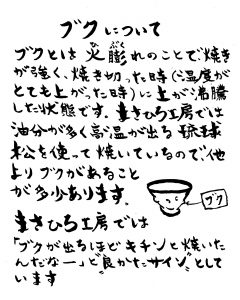 ブクについて
ブクとは火膨れのことで焼き
ひ ぶく
が強く、焼き切った時(温度が
とても上がった時)に土が沸騰
した状態です。まさひろ工房では
油分が多く高温が出る琉球
松を使って焼いているので、他
よりブクがあること
が多少あります。
ブク
まさひろ工房では
「ブクが出るほどキチンと焼いた
んだなー」と“良かたサイン”として
います